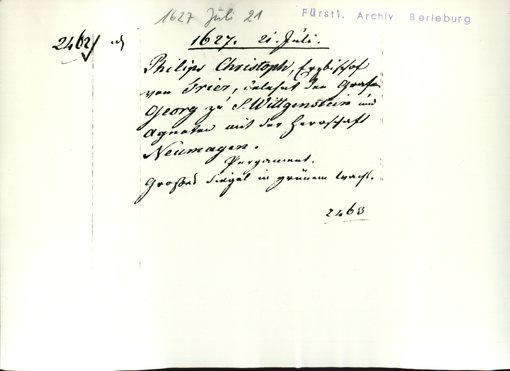 1627 Juli 21
Fürstl. Archiv Berleburg
2462
1627. 21. Juli.
Philips Christoph, Erzbischof
von Trier, belehnt den Grafen
Georg zu S. Wittgenstein und
Agnaten mit der Herrschaft
Neumagen.
Pergament.
Großes Siegel in grünem Wachs.
2463